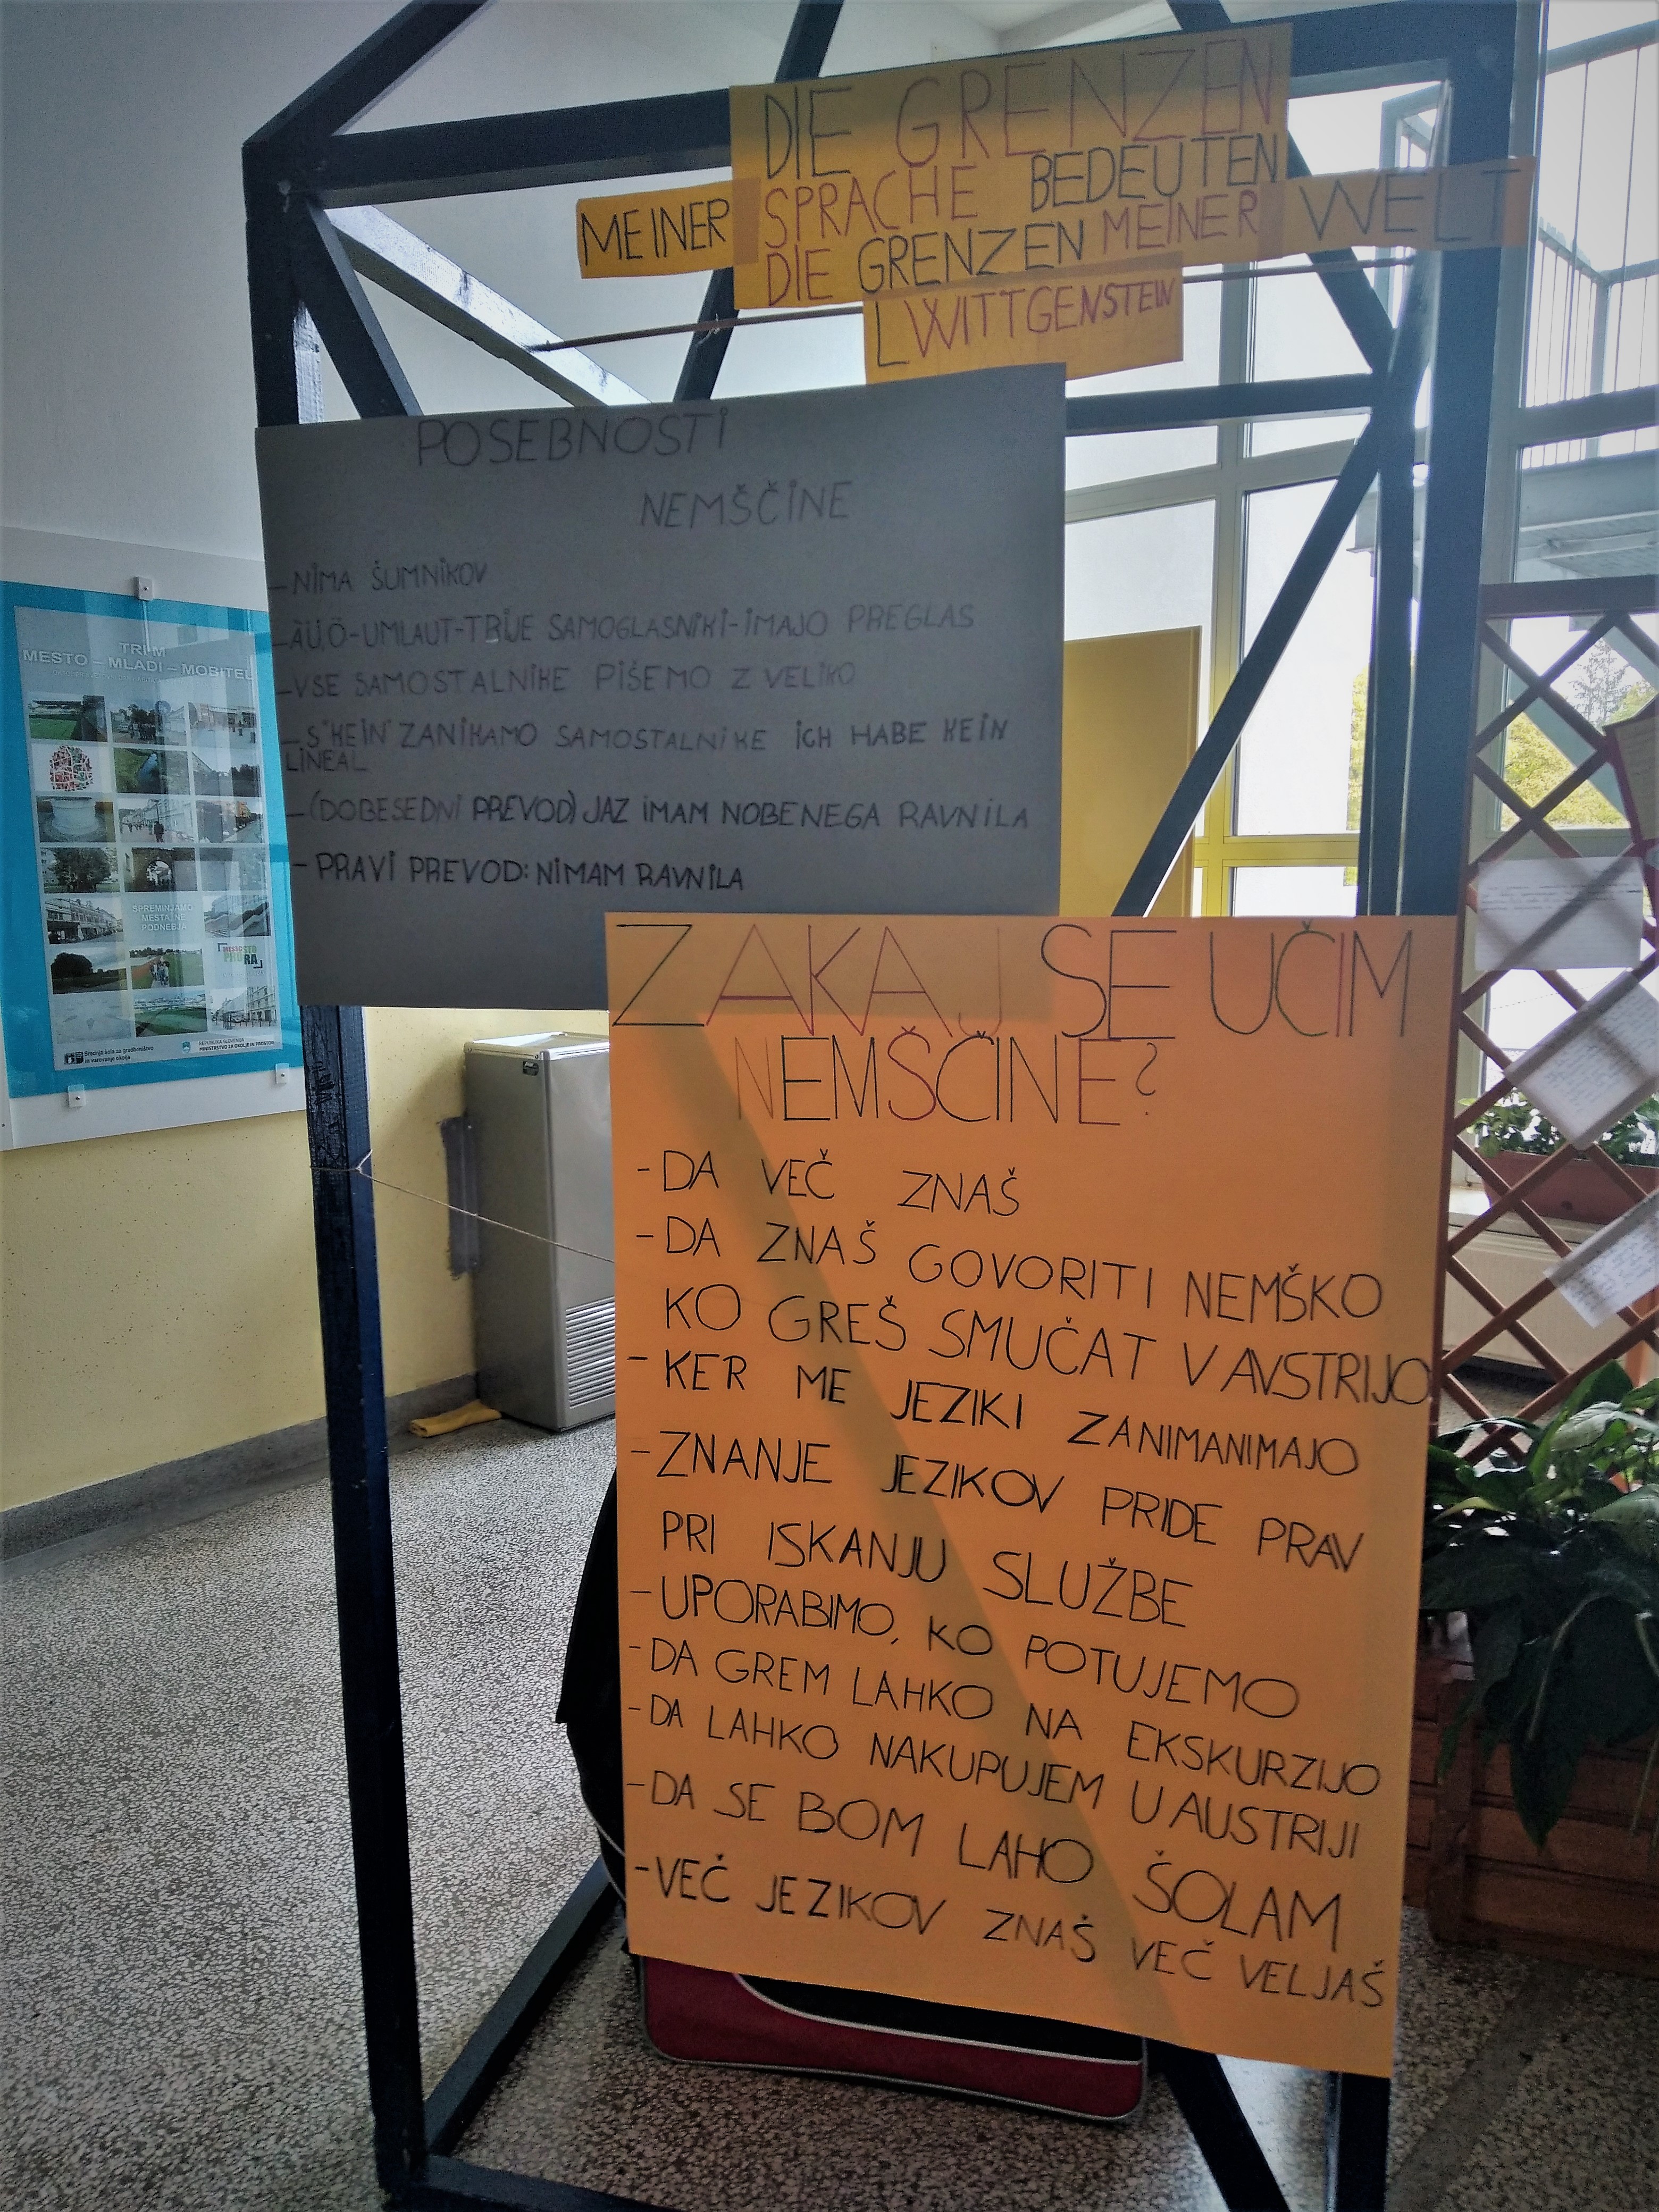 DIE GRENZEN
MEINER SPRACHE BEDEUTEN
DIE GRENZEN MEINER WELT
L WITTGENSTEIN
POSEBNOSTI
NEMŠČINE
-NIMA ŠUMNIKOV
-Ä,Ü,Ö-UMLAUT-TRIJE SAMOGLASNIKI-IMAJO PREGLAS
-VSE SAMOSTALNIKE PIŠEMO Z VELIKO
-S "KEIN" ZANIKAMO SAMOSTALNIKE ICH HABE KEIN
LINEAL
-(DOBESEDNI PREVOD) JAZ IMAM NOBENEGA RAVNILA
- PRAVI PREVOD: NIMAM RAVNILA
ZAKAJ SE UČIM
NEMŠČINE?
-DA VEČ ZNAŠ
-DA ZNAŠ GOVORITI NEMŠKO
KO GREŠ SMUČAT V AVSTRIJO
-KER ME JEZIKI ZANIMANIMAJO
-ZNANJE JEZIKOV PRIDE PRAV
PRI ISKANJU SLUŽBE
-UPORABIMO, KO POTUJEMO
-DA GREM LAHKO NA EKSKURZIJO
-DA LAHKO NAKUPUJEM U AUSTRIJI
-DA SE BOM LAHO ŠOLAM
-VEČ JEZIKOV ZNAŠ VEČ VELJAŠ
TRI M
MESTO – MLADI – MOBITEL
SPREMINJAMO
MESTA, NE
PODNEBJA
Srednja šola za gradbeništvo
in varovanje okolja
REPUBLIKA SLOVENIJA
MINISTRSTVO ZA OKOLJE IN PROSTOR